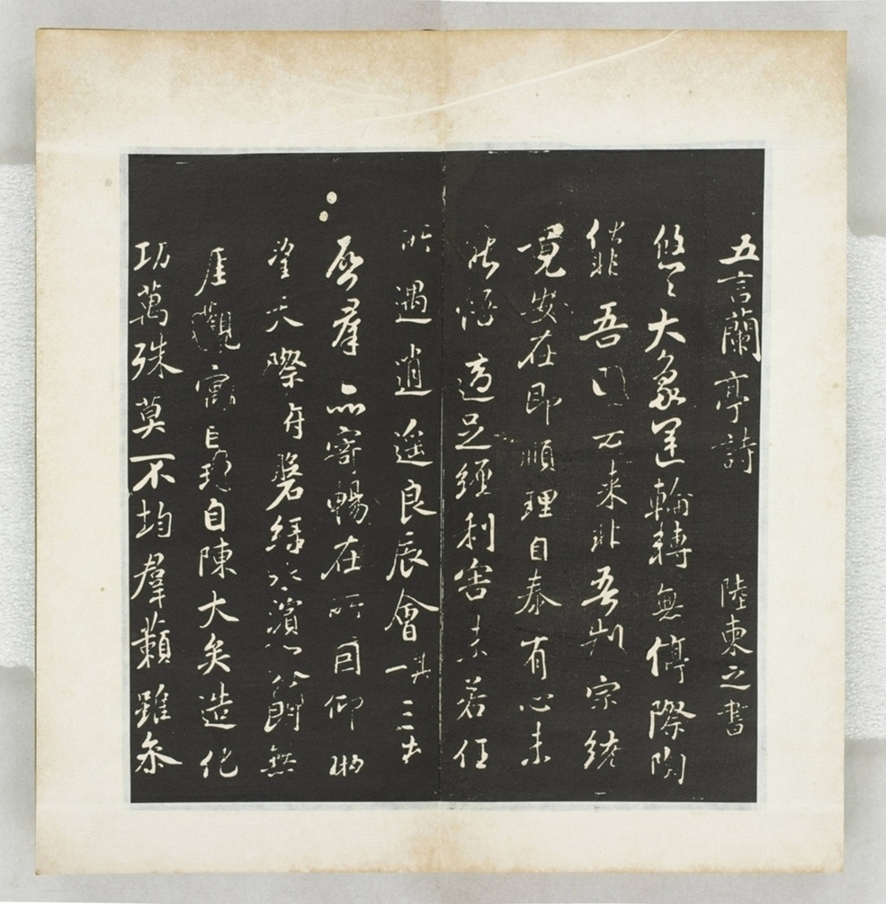 五言蘭亭詩 陸柬之書
悠々大象運輪轉無停際陶
化非吾因去來非吾制宗統
竟安在即順理自泰有心未
能悟適足纏利害未若任
所遇逍遥良辰會 其一 三春
啓羣品寄暢在所因仰眺
望天際俯磐緑水濱寥闃無
厓觀寓目理自陳大矣造化
功萬殊莫不均羣籟雖參